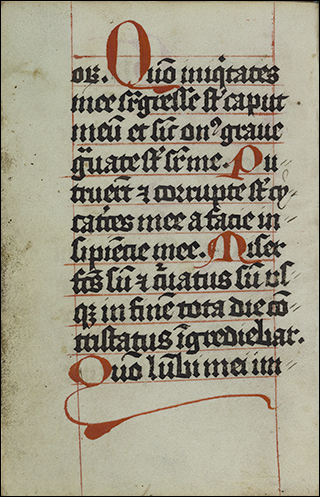 oꝝ. Quō iniqͥtates
mee sr̄g̃resse sūt caput
meū et sic̄ onꝰ graue
gͣuate sūt sr̄ me. Pu
truer̄t ⁊ corrupte sūt cy
catͥces mee a facie in
sipiētie mee. Miser
fc̄s sū ⁊ c̄uatus sū us
qꝫ in finē tota die cō
tristatus īgrediebar.
Quō lūbi mei im